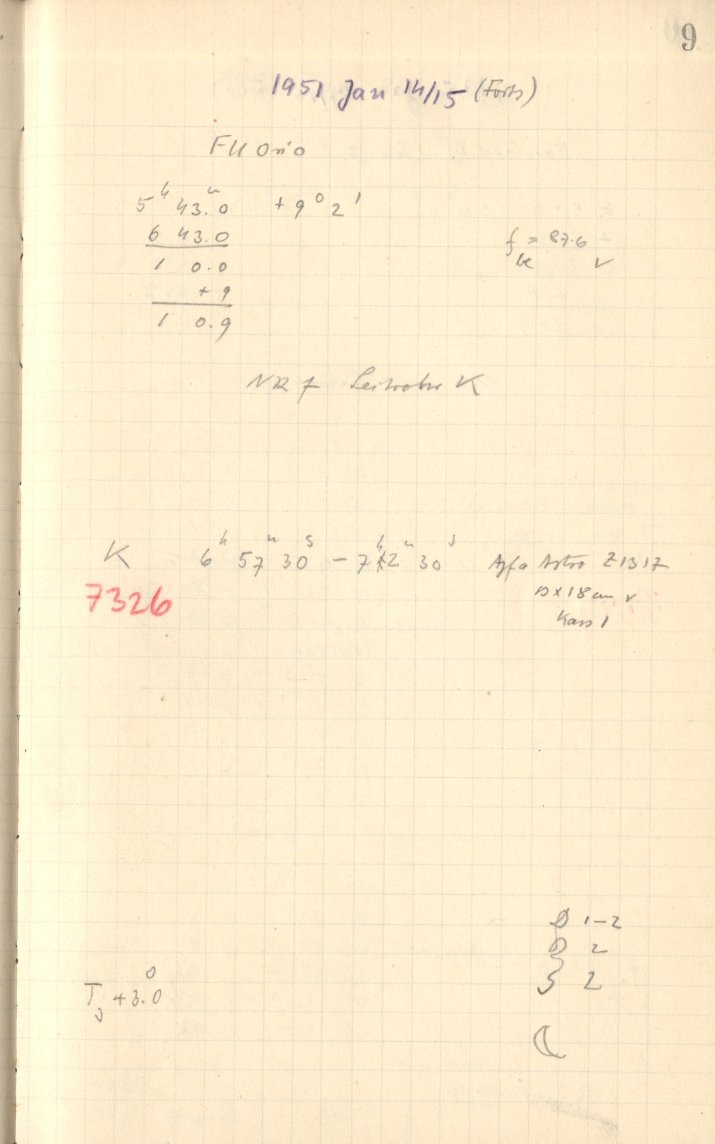 9
1951 Jan 14/15 (Forts)
FU Orio
5ʰ 43.0ᵐ +9° 2'
6 43.0
1 0.0
+ 9
1 0.9
f_K = 87.6 v
NR 7 K
K 6ʰ 57ᵐ 30ˢ – 7ʰ 12ᵐ 30ˢ Agfa Astro Z1317
7326
x 18 cm v
Kass 1
D 1–2
2
S 2
T +3.0°
☾